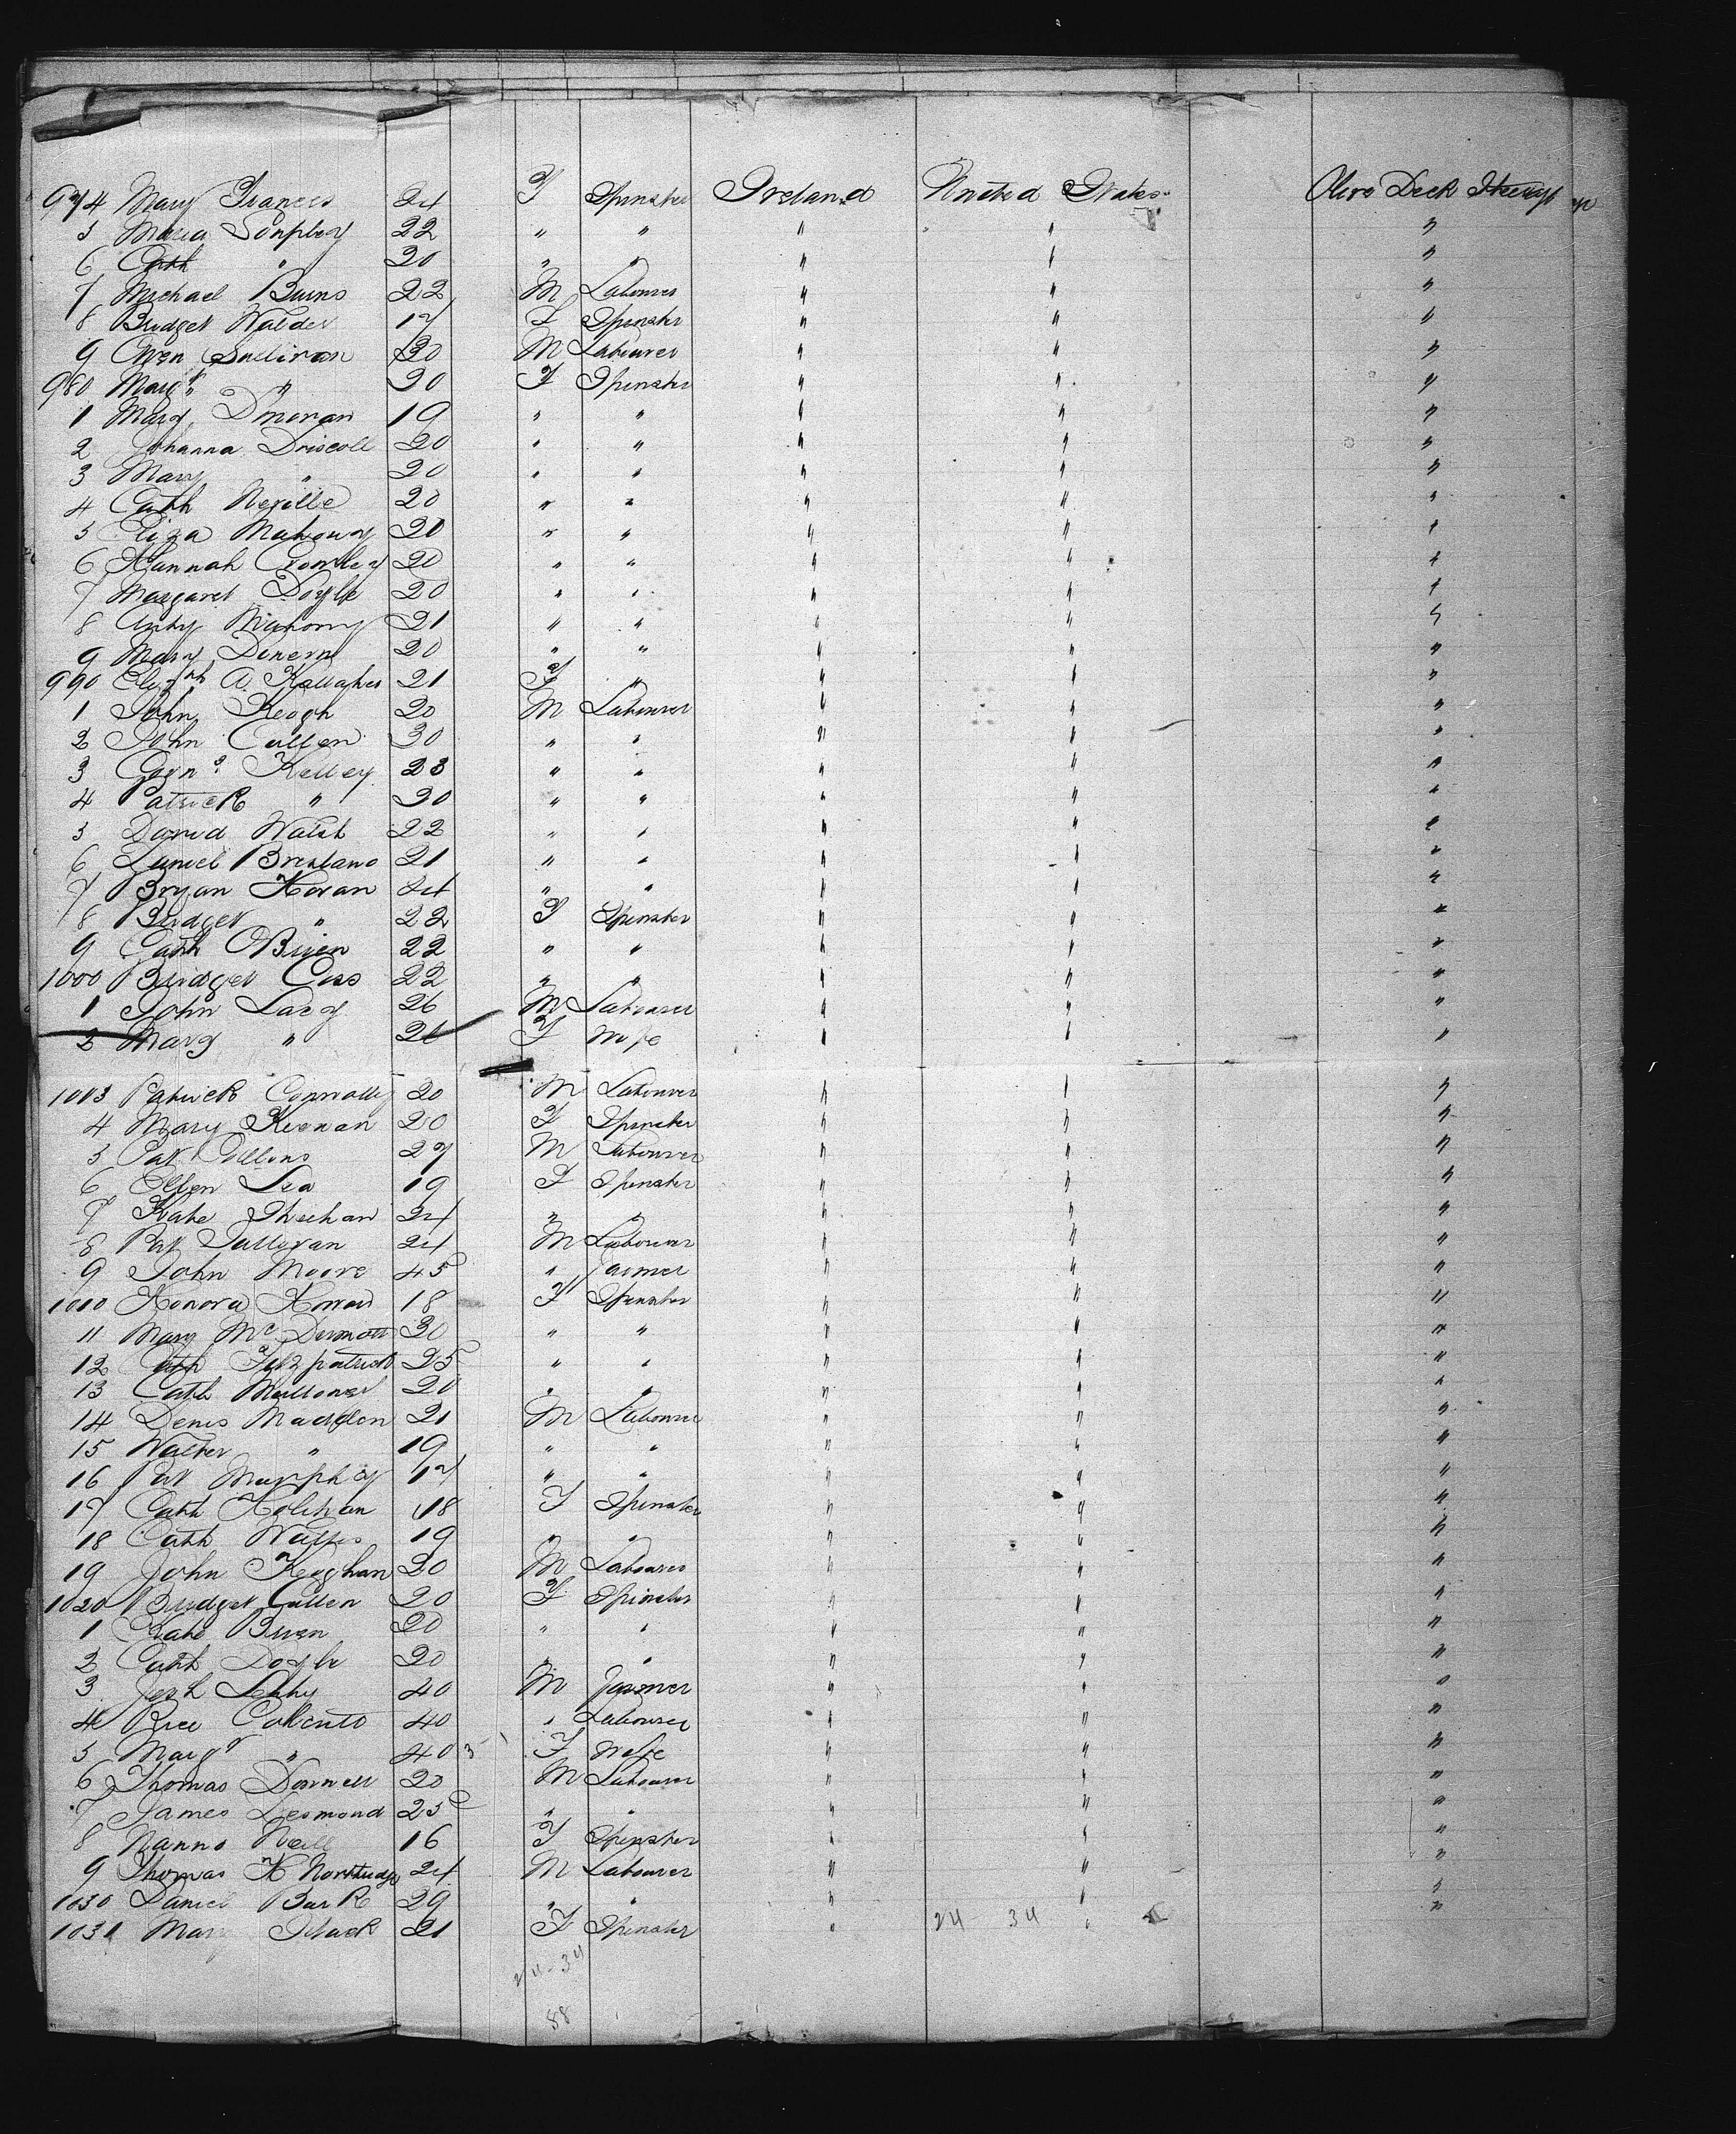 974 Mary Francis 24 F Spinster Ireland United States Olive Deck Steerage
5 Maria 22 " " " " "
6 Cath " 20 " " " " "
7 Michael Burns 22 M Labourer " " "
8 Bridget Walder 17 F Spinster " " "
9 Owen Sullivan 30 M Labourer " " "
980 Margt " 20 F Spinster " " "
1 Mary Donovan 19 " " " " "
2 Johanna Driscoll 20 " " " " "
3 Mary " 20 " " " " "
4 Cath Neville 20 " " " " "
5 Eliza Mahoney 20 " " " " "
6 Hannah Crowley 20 " " " " "
7 Margaret Doyle 20 " " " " "
8 Mahony 21 " " " " "
9 Mary Dineen 20 " " " " "
990 Elizth A. Kallagher 21 F " " " "
1 John Keogh 20 M Labourer " " "
2 John Cullen 30 " " " " "
3 Kelley 23 " " " " "
4 Patrick " 20 " " " " "
5 David Walsh 22 " " " " "
6 Daniel 21 " " " " "
7 Bryan Horan 24 " " " " "
8 Bridget " 22 F Spinster " " "
9 Cath OBrien 22 " " " " "
1000 Bridget 22 " " " " "
1 John Lacy 26 M Labourer " " "
2 Mary " 26 F Wife " " "
1003 Patrick Connolly 20 M Labourer " " "
4 Mary Keenan 20 F Spinster " " "
5 Pat Collins 27 M Labourer " " "
6 Ellen Lea 19 F Spinster " " "
7 Kate Sheehan 24 " " " " "
8 Pat Sullivan 24 M Labourer " " "
9 John Moore 45 " Farmer " " "
1010 Honora 18 F Spinster " " "
11 Mary McDermott 30 " " " " "
12 Cath Fitzpatrick 25 " " " " "
13 Cath 20 " " " " "
14 Denis Madden 21 M Labourer " " "
15 Walter " 19 " " " " "
16 Pat Murphy 17 " " " " "
17 Cath Holihan 18 F Spinster " " "
18 Cath 19 " " " " "
19 John Keoghan 20 M Labourer " " "
1020 Bridget Cullen 20 F Spinster " " "
1 Kate 20 " " " " "
2 Cath Doyle 20 " " " " "
3 Jerh Leahy 40 M Farmer " " "
4 40 " Labourer " " "
5 Margt " 40 3 F Wife " " "
6 Thomas Donnell 20 M Labourer " " "
7 James Desmond 25 " " " " "
8 Nanno Neill 16 F Spinster " " "
9 Thomas H Northridge 24 M Labourer " " "
1030 Daniel 29 " " " " "
1031 Mary 21 F Spinster " 24 - 34 "
24-34
88